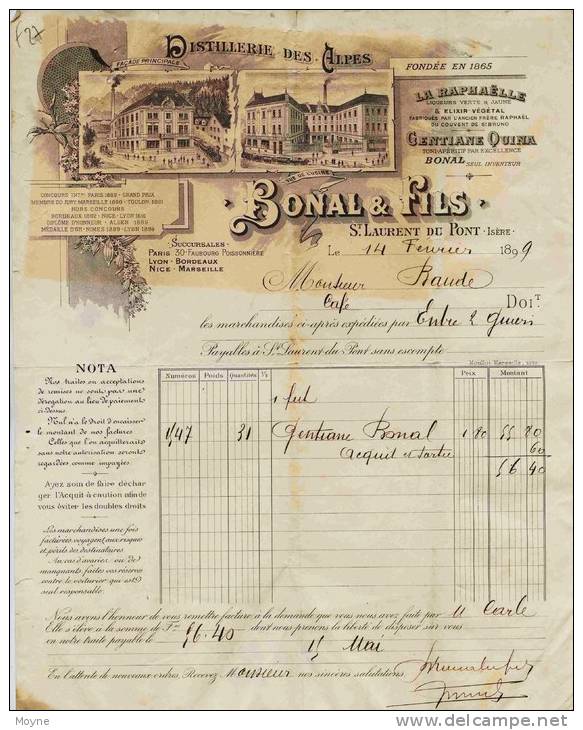 F27
DISTILLERIE DES ALPES
FAÇADE PRINCIPALE
FONDÉE EN 1865
LA RAPHAËLLE
LIQUEURS VERTE & JAUNE
& ELIXIR VÉGÉTAL
FABRIQUÉS PAR L'ANCIEN FRÈRE RAPHAEL
DU COUVENT DE ST BRUNO
GENTIANE QUINA
TONI-APÉRITIF PAR EXCELLENCE
BONAL SEUL INVENTEUR
VUE DE L'USINE
BONAL & FILS
ST LAURENT DU PONT (ISÈRE)
CONCOURS INTAL PARIS 1889 - GRAND PRIX
MEMBRE DU JURY, MARSEILLE 1890 - TOULON 1891
HORS CONCOURS
BORDEAUX 1892 - NICE - LYON 1892
DIPLÔME D'HONNEUR - ALGER 1889
MÉDAILLE D'OR - NIMES 1889 - LYON 1894
SUCCURSALES
PARIS 30 FAUBOURG POISSONNIÈRE
LYON - BORDEAUX
NICE - MARSEILLE
Le 14 Fevrier 1899
Monsieur Baude
Café
DOIT
les marchandises ci-après expédiées par Entre 2 Guiers
Payables à St Laurent du Pont sans escompte
Moullot Marseille
NOTA
Nos traites ou acceptations
de remises ne sont pas une
dérogation au lieu de paiement
ci-dessus.
Nul n'a le droit d'encaisser
le montant de nos factures
Celles que l'on acquitterait
sans notre autorisation seront
regardées comme impayées.
Avez soin de faire déchar
ger l'Acquit à caution afin de
vous éviter les doubles droits
Les marchandises une fois
facturées, voyagent aux risques
et périls des destinataires
Au cas d'avaries ou de
manquants, faites vos réserves
contre le voiturier qui est
seul responsable.
Numéros Poids Quantités Prix Montant
1 fut
1/47 31 Gentiane Bonal 1 80 55 80
acquit et sortie 60
56 40
Nous avons l'honneur de vous remettre facture à la demande que vous nous avez faite par M Carle
Elle s'élève à la somme de Fcs 56.40 dont nous prenons la liberté de disposer sur vous
en notre traite payable le 15 Mai
En l'attente de nouveaux ordres, Recevez Monsieur nos sincères salutations
Moyne
www.delcampe.net